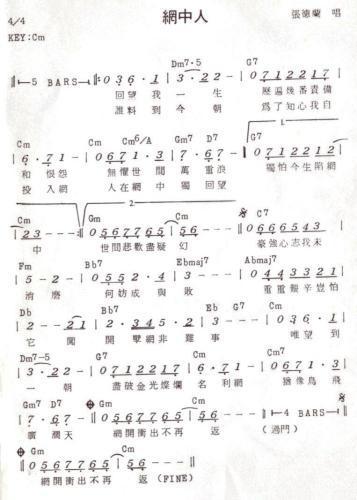 網中人
4/4
張德蘭 唱
KEY:Cm
Dm7-5 G7
‖—5 BARS—‖: 0 3 6 · 1 | 3 · 2 2 — | 0 7 1 2 2 1 7 |
回望我一生 歷遍幾番責備
誰料到今朝 為了知心我自
1.
Cm Cm Cm6/A Gm7 D7 G7
| 6 · 7 1 — | 0 6 7 1 3 · 1 | 7 · 6 7 — | 0 7 1 2 2 1 2 |
和恨怨 無懼世間萬重浪 獨怕今生陷網
投入網 人在網中獨回望
2
Cm Gm Cm C7
| 2 3 — — :‖ 0 5 6 7 7 6 5 | 5 6 — — | 0 6 6 6 5 4 3 |
中 世間悲歡盡疑幻 豪強心志我未
Fm Bb7 Ebmaj7 Ebmaj7
| 5 — 2 — | 0 5 5 2 · 4 | 3 — — — | 0 4 4 3 3 2 1 |
消磨 何妨成與敗 重重艱辛豈怕
Db Bb7 Eb Cm
| 2 — — 2 1 | 2 · 3 4 5 · 2 | 3 — — — | 0 6 7 1 · 3 |
它 闖開孽網非難事 唯望到
Dm7-5 G7 Cm Cm7
| 3 · 2 2 — | 0 7 1 2 2 1 7 | 6 · 7 1 — | 0 6 7 1 · 3 |
一朝 盡破金光燦爛名利網 猶像鳥飛
Gm7 D7 Gm Cm
| 7 · 6 7 — | 0 5 6 7 7 6 5 | 5 6 — — ‖—4 BARS—‖
廣濶天 網開衝出不再返 (過門)
Gm Cm
| 0 5 6 7 7 6 5 | 5 6 — — ‖
網開衝出不再返 (FINE)